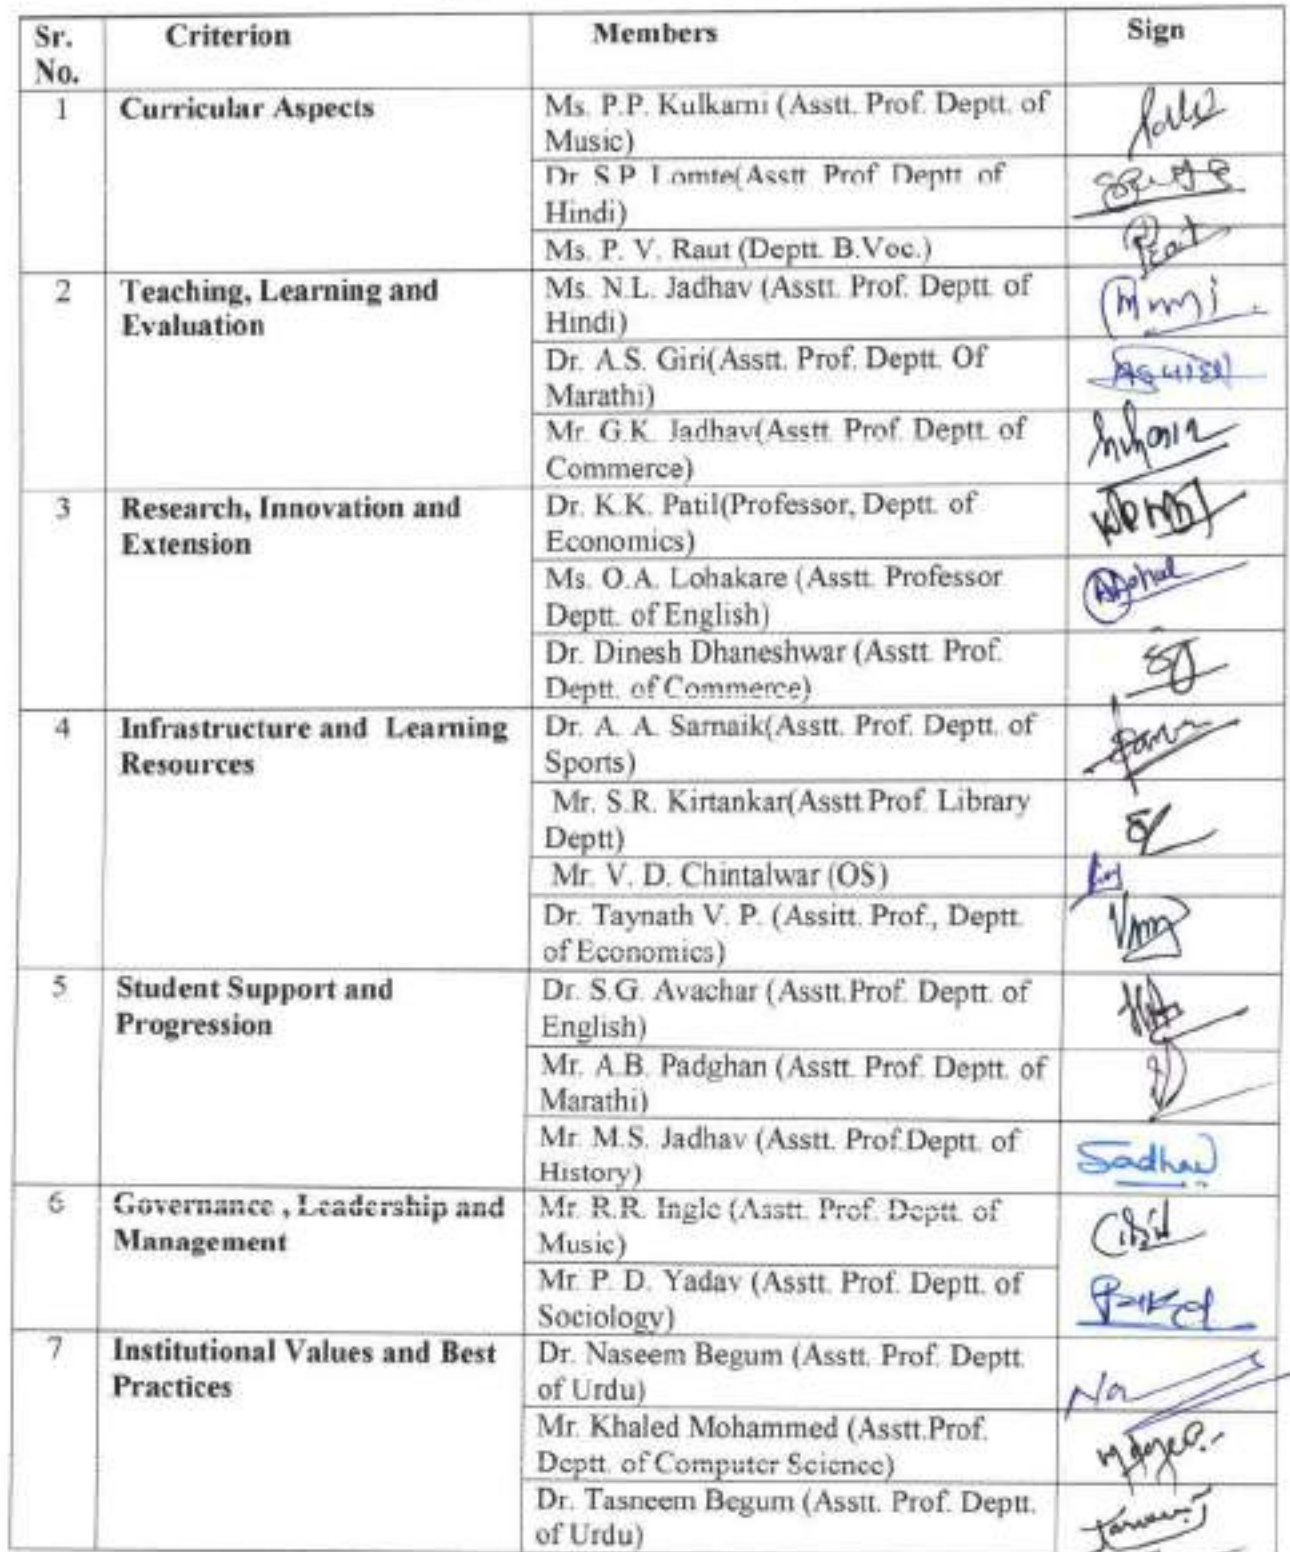 Sr. No. Criterion Members Sign
1 Curricular Aspects Ms. P.P. Kulkarni (Asstt. Prof. Deptt. of
Music)
Dr. S.P. Lomte(Asstt. Prof. Deptt. of
Hindi)
Ms. P. V. Raut (Deptt. B.Voc.)
2 Teaching, Learning and
Evaluation
Ms. N.L. Jadhav (Asstt. Prof. Deptt. of
Hindi)
Dr. A.S. Giri(Asstt. Prof. Deptt. Of
Marathi)
Mr. G.K. Jadhav(Asstt. Prof. Deptt. of
Commerce)
3 Research, Innovation and
Extension
Dr. K.K. Patil(Professor, Deptt. of
Economics)
Ms. O.A. Lohakare (Asstt. Professor
Deptt. of English)
Dr. Dinesh Dhaneshwar (Asstt. Prof.
Deptt. of Commerce)
4 Infrastructure and Learning
Resources
Dr. A. A. Sarnaik(Asstt. Prof. Deptt. of
Sports)
Mr. S.R. Kirtankar(Asstt.Prof. Library
Deptt)
Mr. V. D. Chintalwar (OS)
Dr. Taynath V. P. (Assitt. Prof., Deptt.
of Economics)
5 Student Support and
Progression
Dr. S.G. Avachar (Asstt.Prof. Deptt. of
English)
Mr. A.B. Padghan (Asstt. Prof. Deptt. of
Marathi)
Mr. M.S. Jadhav (Asstt. Prof.Deptt. of
History)
6 Governance , Leadership and
Management
Mr. R.R. Ingle (Asstt. Prof. Deptt. of
Music)
Mr. P. D. Yadav (Asstt. Prof. Deptt. of
Sociology)
7 Institutional Values and Best
Practices
Dr. Naseem Begum (Asstt. Prof. Deptt.
of Urdu)
Mr. Khaled Mohammed (Asstt.Prof.
Deptt. of Computer Science)
Dr. Tasneem Begum (Asstt. Prof. Deptt.
of Urdu)